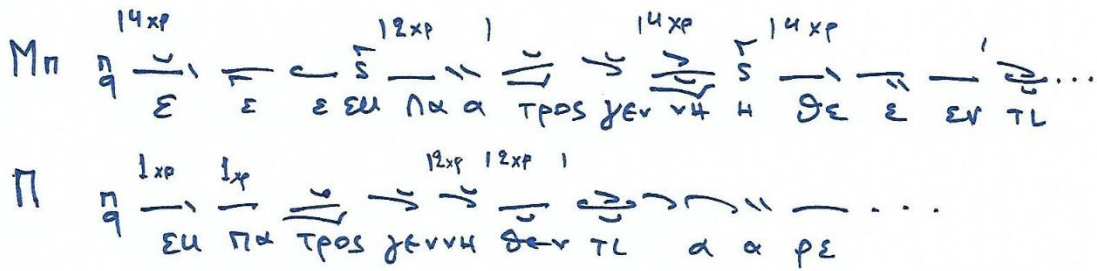 14χρ 12χρ 14χρ 14χρ
Μπ
ε ε ε εκ πα α τρος γεν νη η θε ε εν τι ...
1χρ 1χρ 12χρ 12χρ
Π
εκ πα τρος γεννη θεν τι α α ρε ....